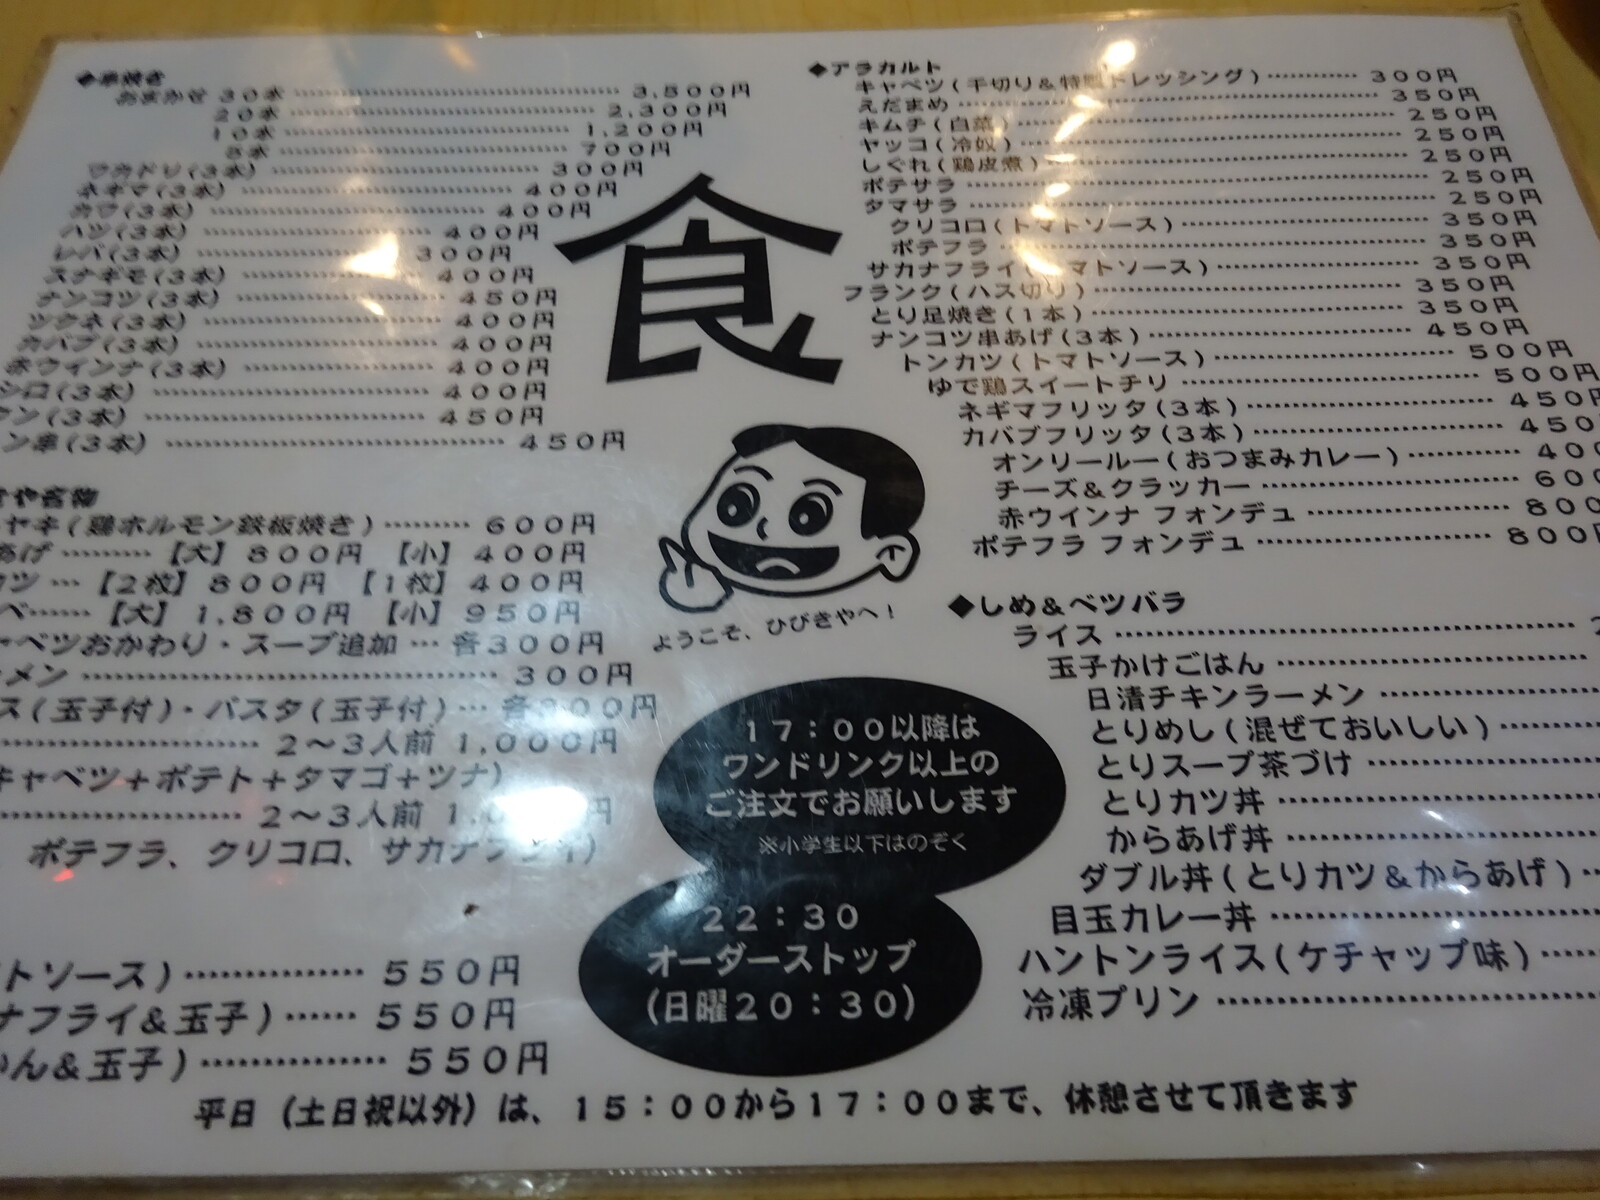 ◆串焼き
おまかせ 30本 3,500円
20本 2,300円
10本 1,200円
5本 700円
ワカドリ(3本) 300円
ネギマ(3本) 400円
カワ(3本) 400円
ハツ(3本) 400円
レバ(3本) 300円
スナギモ(3本) 400円
ナンコツ(3本) 450円
ツクネ(3本) 400円
カバブ(3本) 400円
赤ウインナ(3本) 400円
シロ(3本) 400円
(3本) 450円
ン串(3本) 450円
や名物
ヤキ(鶏ホルモン鉄板焼き) 600円
あげ 【大】800円 【小】400円
カツ … 【2枚】800円 【1枚】400円
【大】1,800円 【小】950円
ャベツおかわり・スープ追加 … 各300円
ーメン 300円
ス(玉子付)・パスタ(玉子付) … 各300円
2〜3人前 1,000円
キャベツ+ポテト+タマゴ+ツナ)
2〜3人前
ポテフラ、クリコロ、サカナフライ)
トソース) 550円
ナフライ&玉子) 550円
かん&玉子) 550円
食
ようこそ、ひびきやへ!
17:00以降は
ワンドリンク以上の
ご注文でお願いします
※小学生以下はのぞく
22:30
オーダーストップ
(日曜20:30)
◆アラカルト
キャベツ(千切り&特製ドレッシング) 300円
えだまめ 350円
キムチ(白菜) 250円
ヤッコ(冷奴) 250円
しぐれ(鶏皮煮) 250円
ポテサラ 250円
タマサラ 250円
クリコロ(トマトソース) 350円
ポテフラ 350円
サカナフライ(トマトソース) 350円
フランク(ハス切り) 350円
とり足焼き(1本) 350円
ナンコツ串あげ(3本) 450円
トンカツ(トマトソース) 500円
ゆで鶏スイートチリ 500円
ネギマフリッタ(3本) 450円
カバブフリッタ(3本) 450
オンリールー(おつまみカレー) 400
チーズ&クラッカー 600
赤ウインナ フォンデュ 800
ポテフラ フォンデュ 800円
◆しめ&ベツバラ
ライス
玉子かけごはん
日清チキンラーメン
とりめし(混ぜておいしい)
とりスープ茶づけ
とりカツ丼
からあげ丼
ダブル丼(とりカツ&からあげ)
目玉カレー丼
ハントンライス(ケチャップ味)
冷凍プリン
平日(土日祝以外)は、15:00から17:00まで、休憩させて頂きます